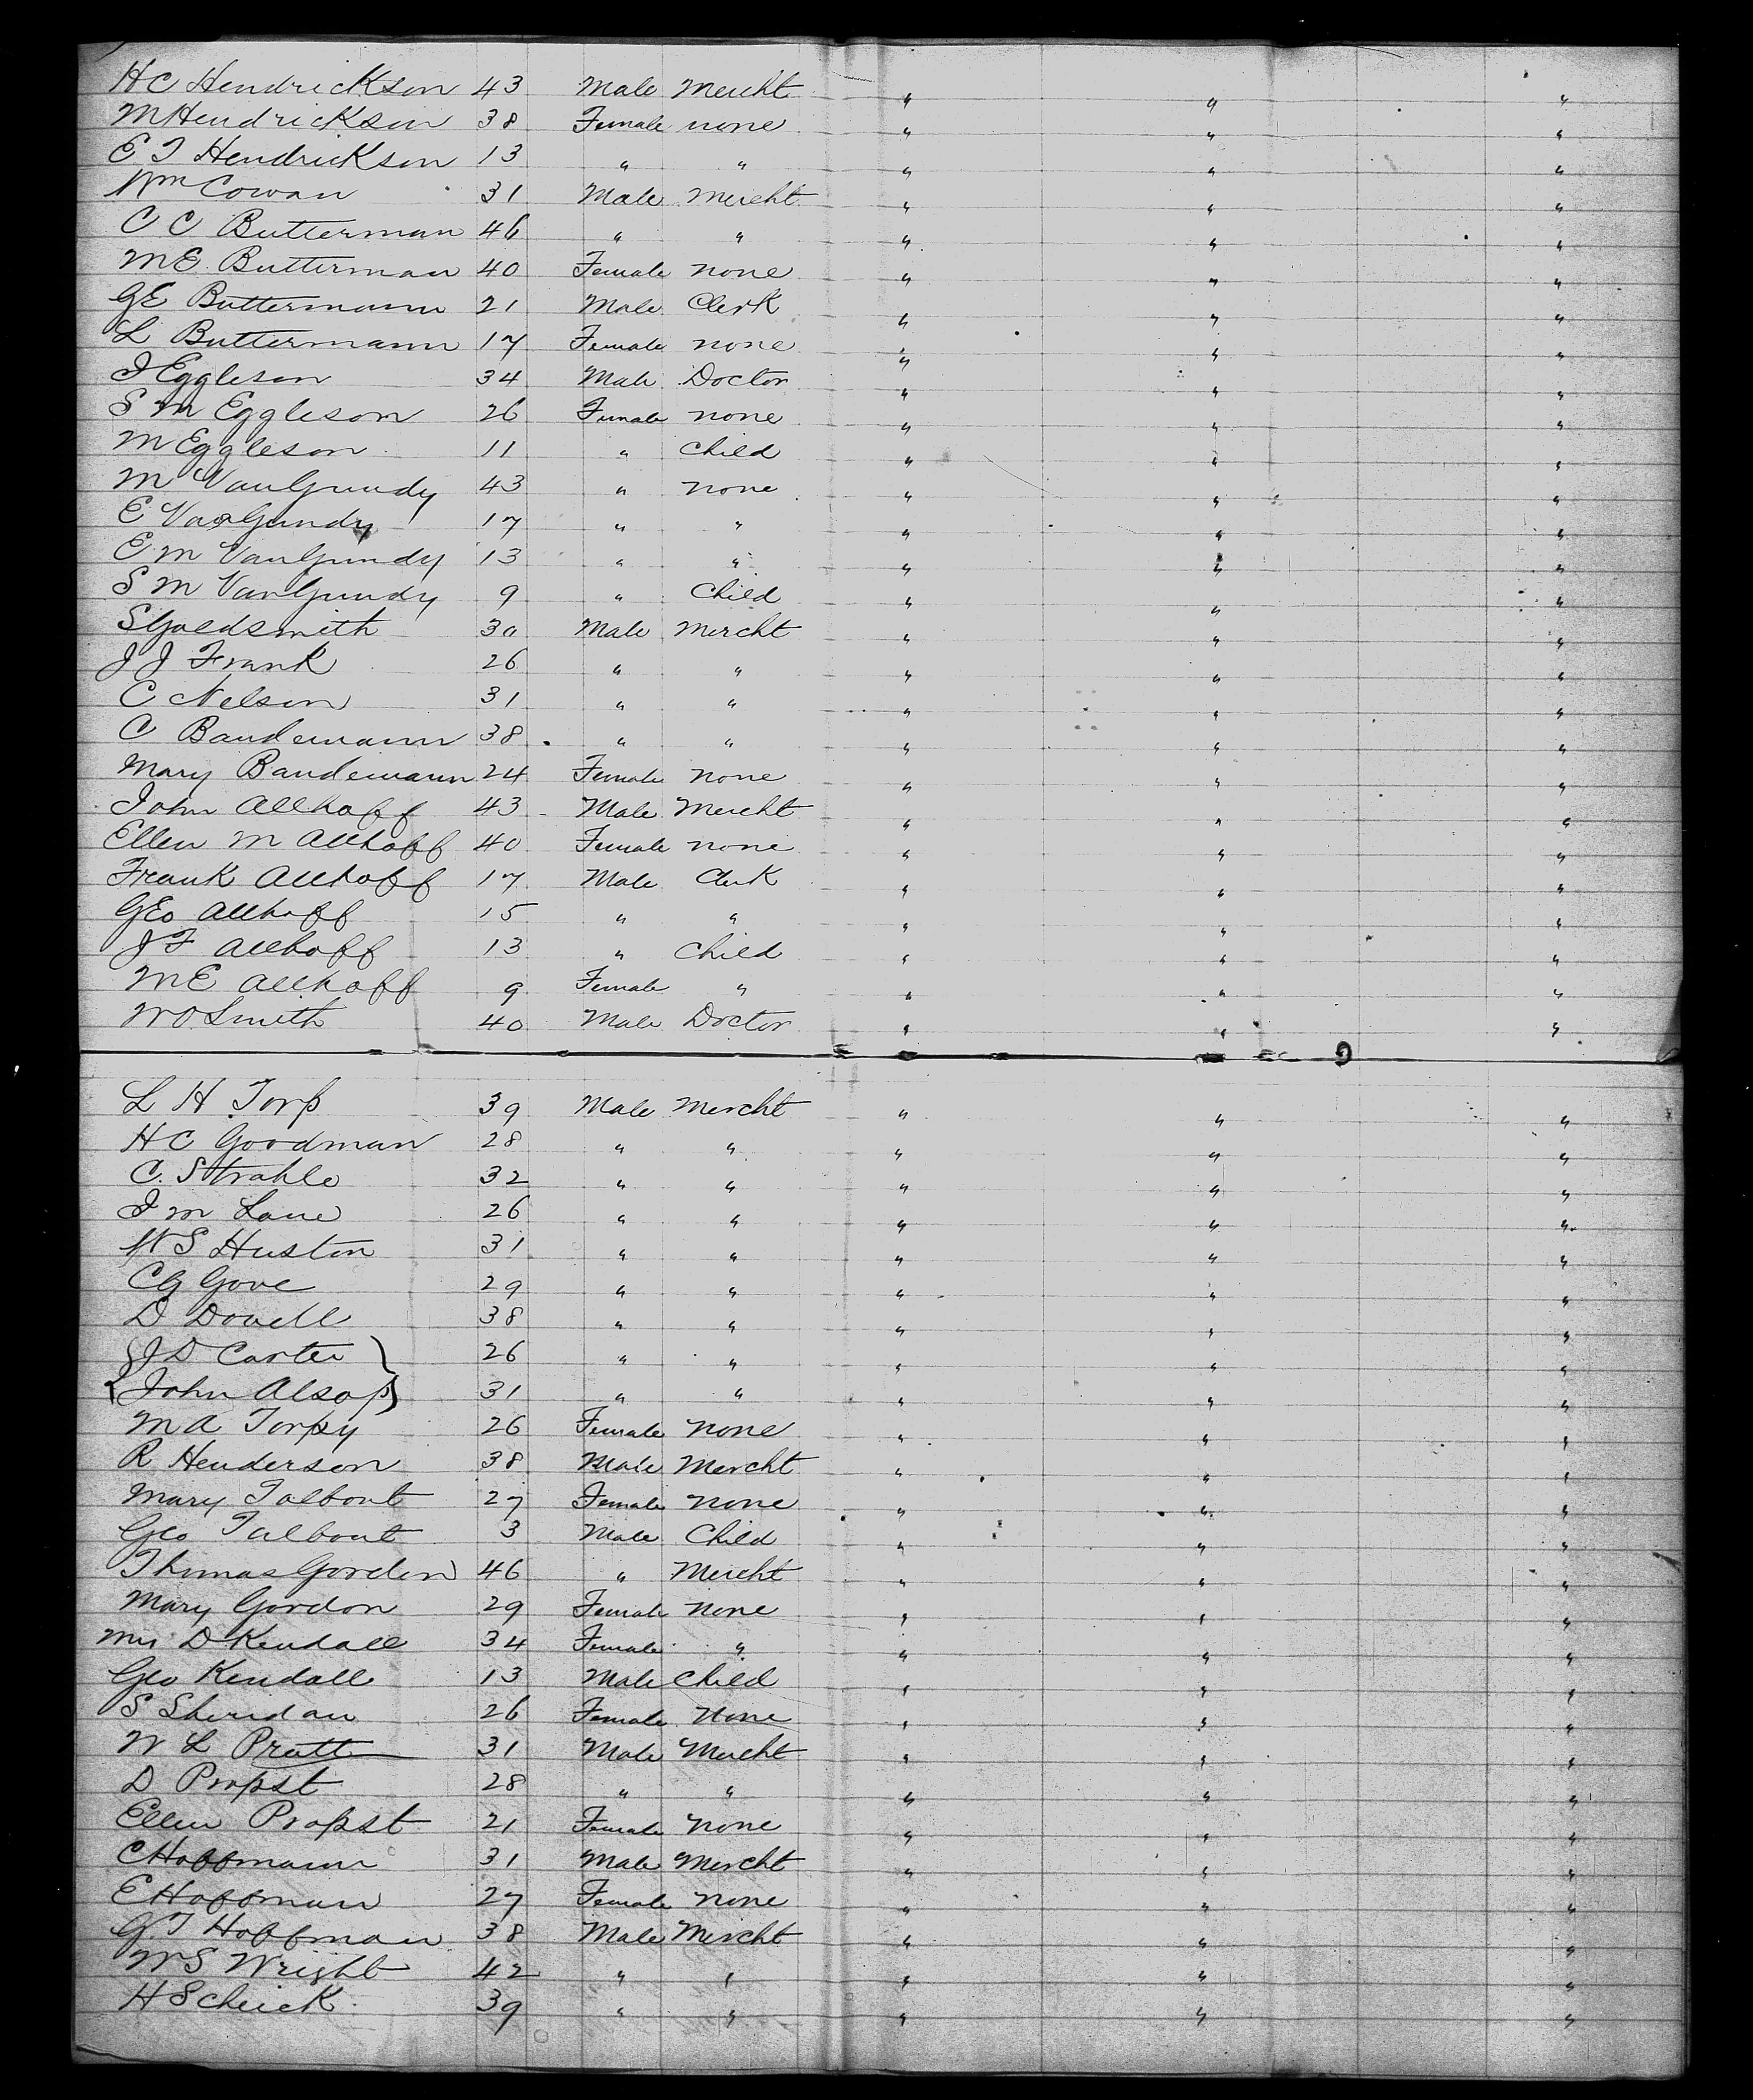 HC Hendrickson 43 Male Mercht " " "
M Hendrickson 38 Female none " " "
E T Hendrickson 13 " " " " "
Wm Cowan 31 Male Mercht " " "
C C Butterman 46 " " " " "
ME Butterman 40 Female none " " "
GE Buttermann 21 Male Clerk " " "
L Buttermann 17 Female none " " "
J Eggleson 34 Male Doctor " " "
S M Eggleson 26 Female none " " "
M Eggleson 11 " Child " " "
M VanGundy 43 " none " " "
E VanGundy 17 " " " " "
E M VanGundy 13 " " " " "
S M VanGundy 9 " Child " " "
S Goldsmith 30 Male Mercht " " "
J J Frank 26 " " " " "
C Nelson 31 " " " " "
C Bandemann 38 " " " " "
Mary Bandemann 24 Female none " " "
John Allhoff 43 Male Mercht " " "
Ellen M Allhoff 40 Female none " " "
Frank Allhoff 17 Male Clerk " " "
Geo Allhoff 15 " " " " "
J F Allhoff 13 " Child " " "
ME Allhoff 9 Female " " " "
W O Smith 40 Male Doctor " " "
L H Torp 39 Male Mercht " " "
HC Goodman 28 " " " " "
C. Strahle 32 " " " " "
J M Lane 26 " " " " "
W S Huston 31 " " " " "
CG Gove 29 " " " " "
D Dowell 38 " " " " "
{J D Carter} 26 " " " " "
{John Alsop} 31 " " " " "
M A Torpy 26 Female none " " "
R Henderson 38 Male Mercht " " "
Mary Talbout 27 Female none " " "
Geo Talbout 3 Male Child " " "
Thomas Gordon 46 " Mercht " " "
Mary Gordon 29 Female none " " "
Mrs D Kendall 34 Female " " " "
Geo Kendall 13 Male Child " " "
S Sheridan 26 Female None " " "
W L Pratt 31 Male Mercht " " "
D Propst 28 " " " " "
Ellen Propst 21 Female none " " "
C Hoffmann 31 Male Mercht " " "
E Hoffman 27 Female none " " "
G. T Hoffman 38 Male Mercht " " "
W S Wright 42 " " " " "
H Scheick 39 " " " " "